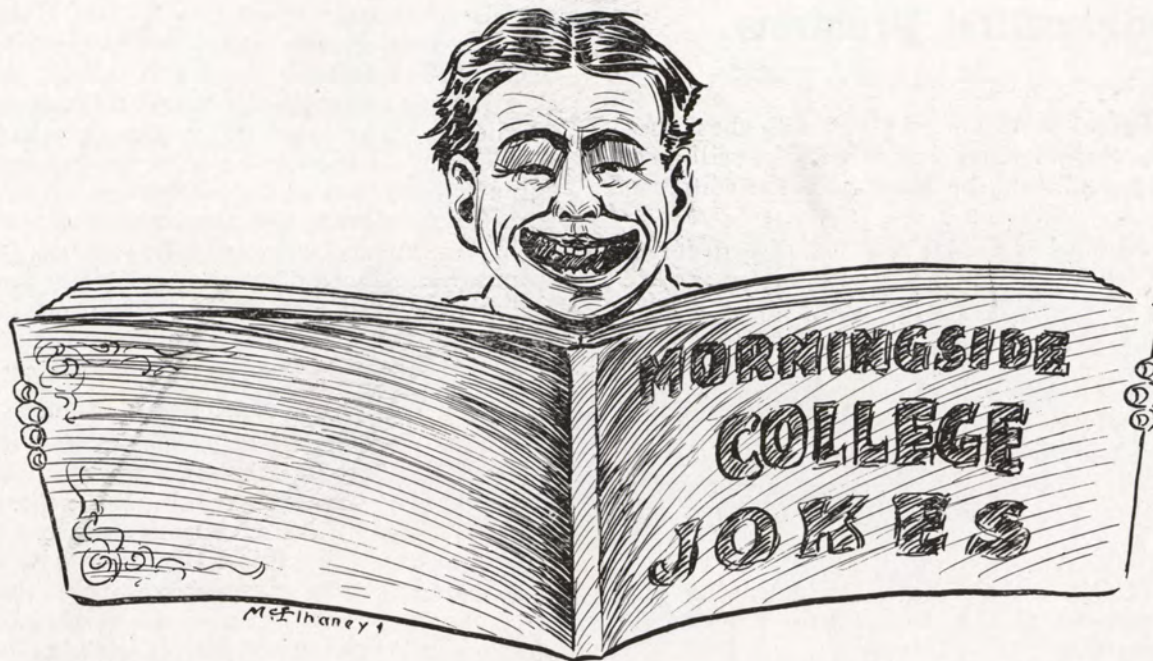 MORNINGSIDE
COLLEGE
JOKES
McElhaney